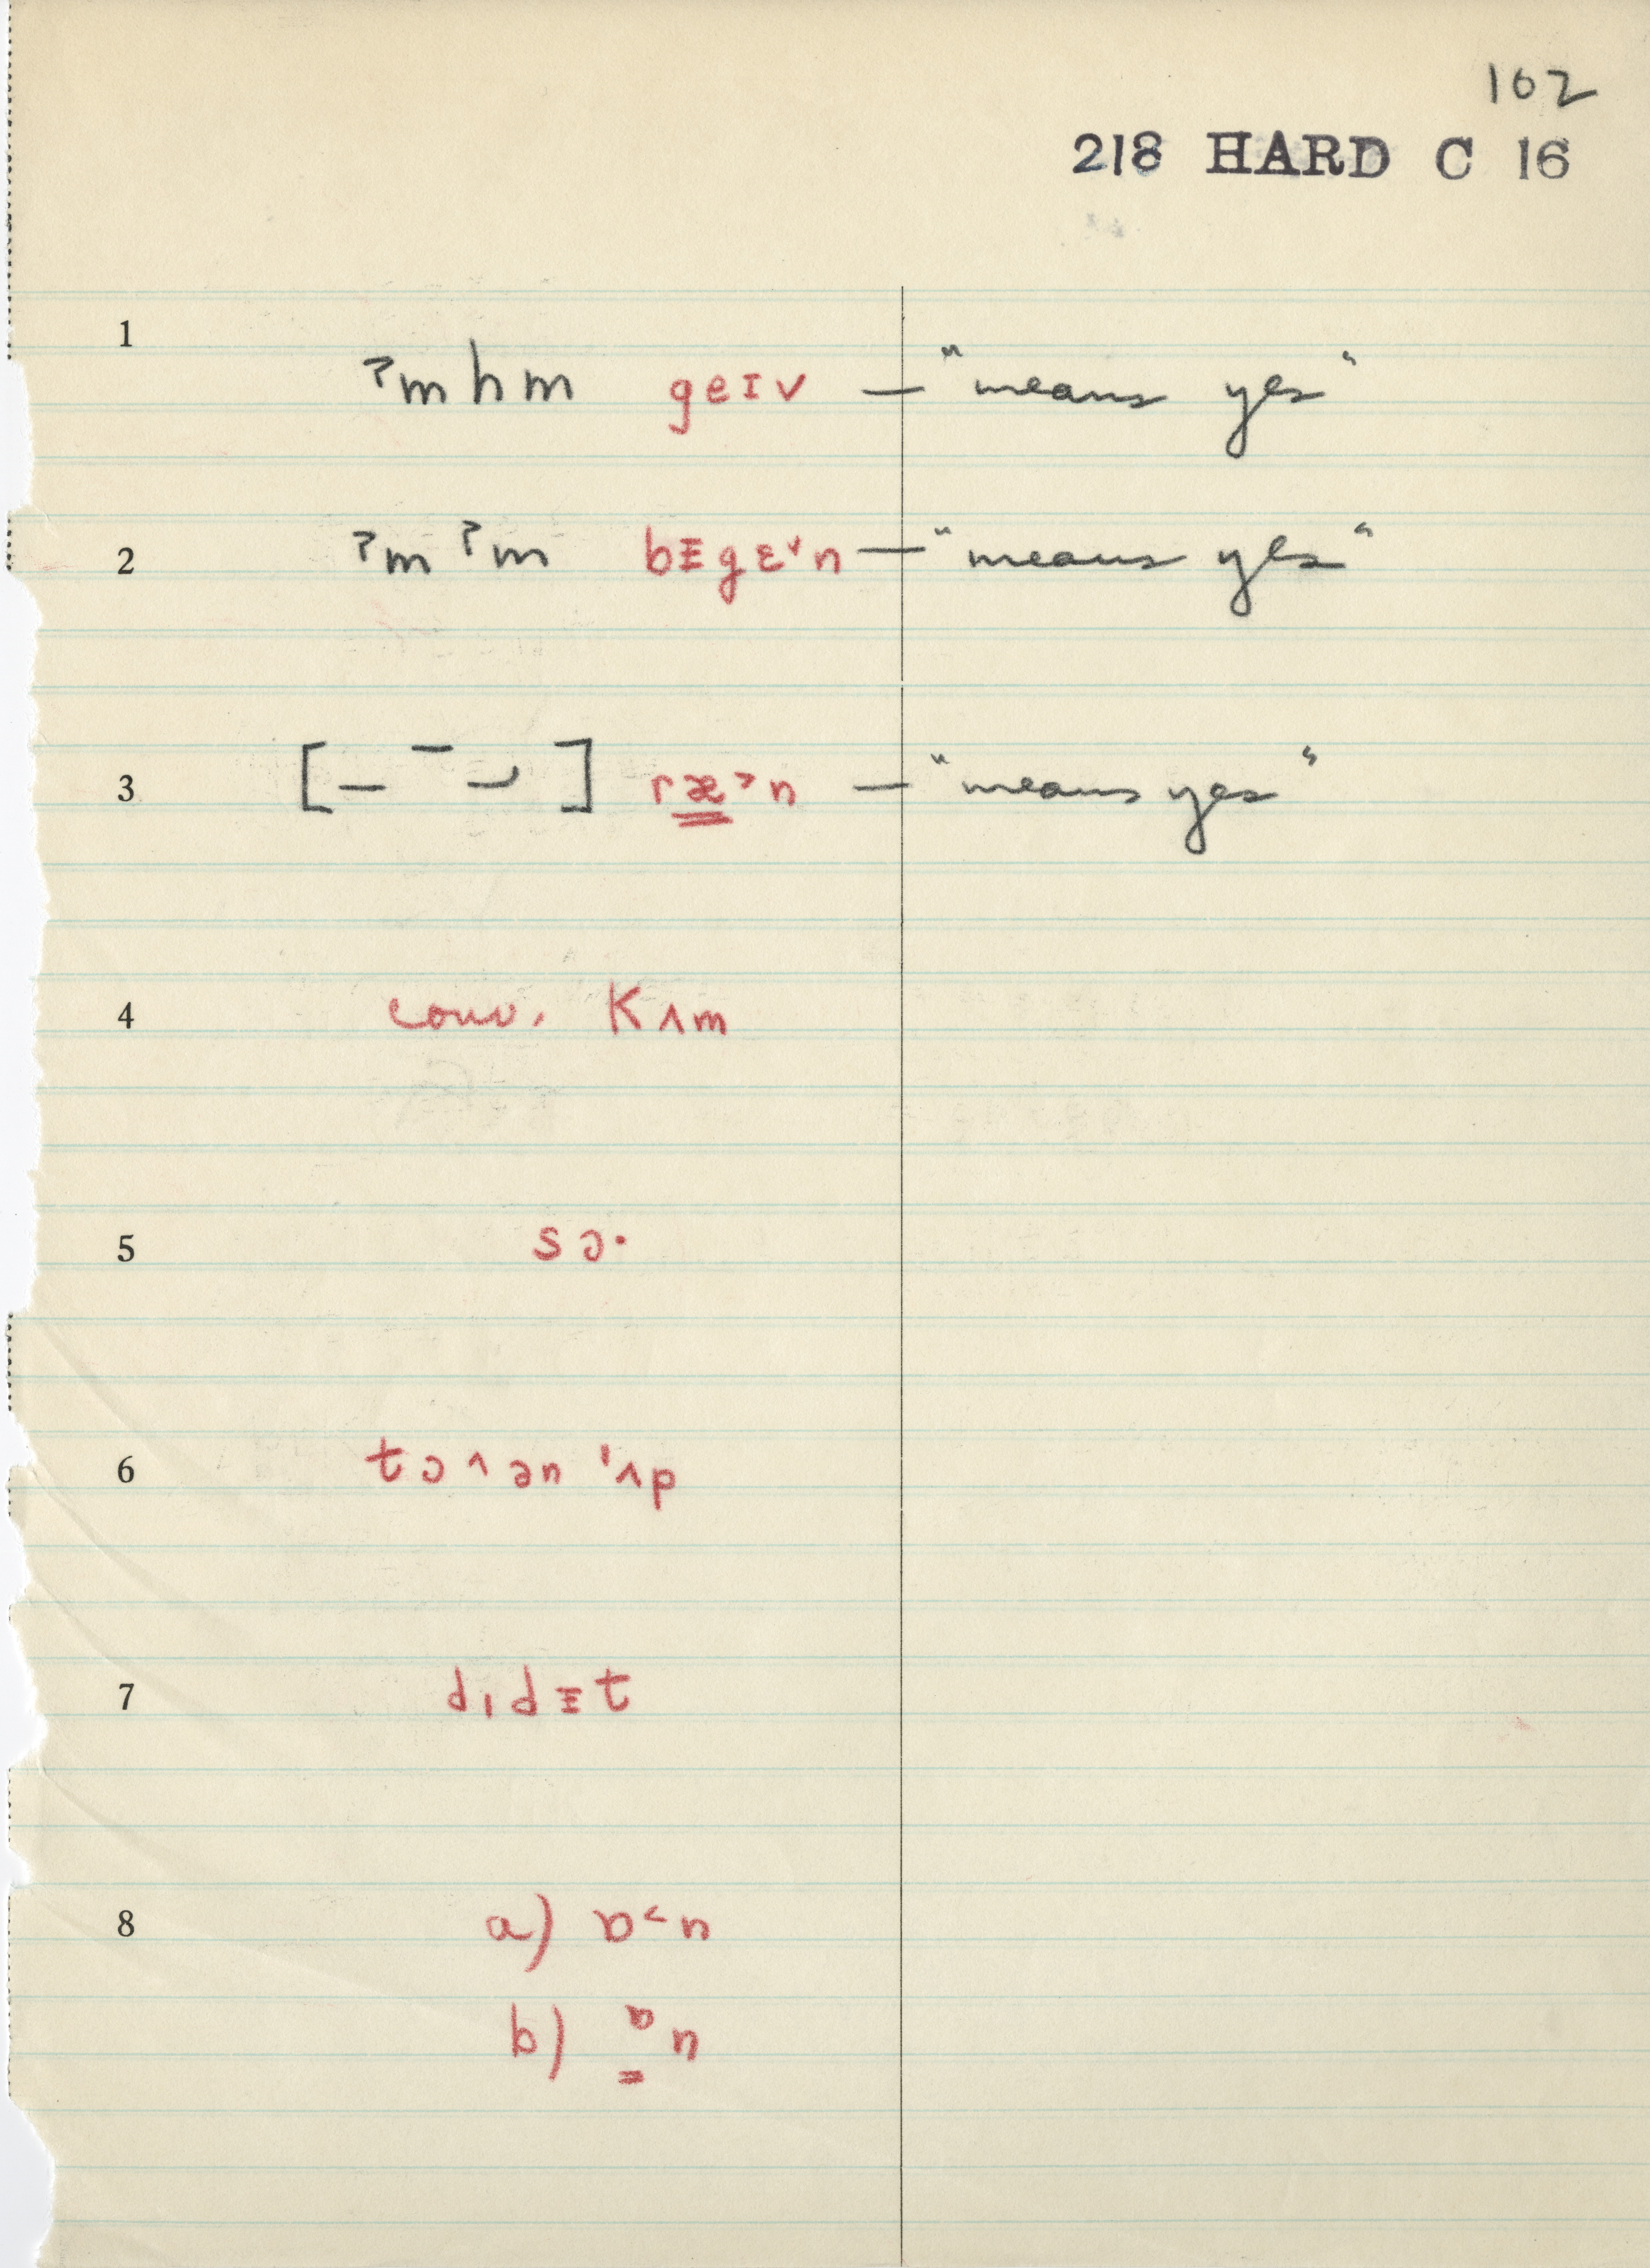 102
218 HARD C 16
1 ˀm h m geɪv — "means yes"
2 ˀm ˀm bᵻgɛ˅n — "means yes"
3 [– ¯ –́ ] ræ̳˃n — "means yes"
4 conv. Kʌm
5 sɔ·
6 tɔ˄ən 'ʌp
7 dɪdᵻt
8 a) ɒ˂n
b) ɒ̳n